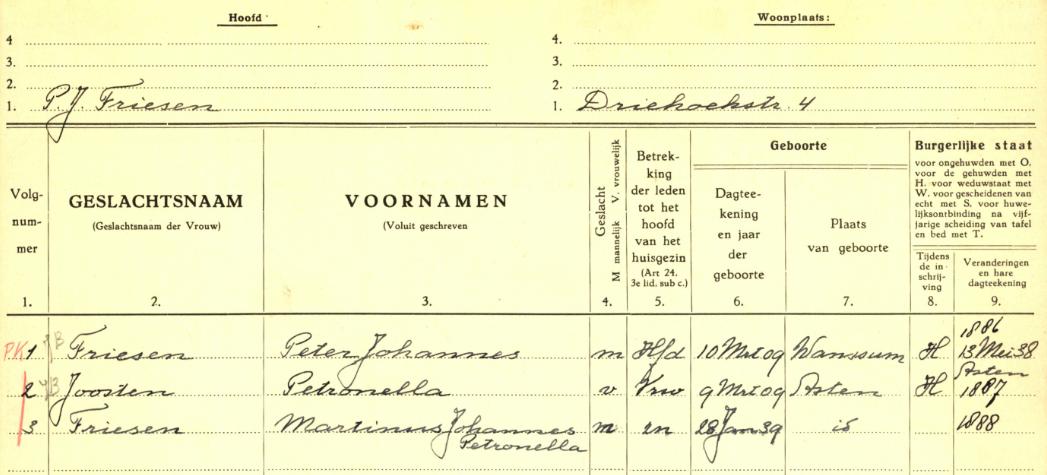 Hoofd Woonplaats:
4 4.
3. 3.
2. 2.
1. P.J. Friesen 1. Driehoekstr. 4
Volg-
num-
mer
1.
GESLACHTSNAAM
(Geslachtsnaam der Vrouw)
2.
VOORNAMEN
(Voluit geschreven
3.
Geslacht
M mannelijk V. vrouwelijk
4.
Betrek-
king
der leden
tot het
hoofd
van het
huisgezin
(Art 24.
3e lid. sub c.)
5.
Geboorte
Dagtee-
kening
en jaar
der
geboorte
6.
Plaats
van geboorte
7.
Burgerlijke staat
voor ongehuwden met O.
voor de gehuwden met
H. voor weduwstaat met
W. voor gescheidenen van
echt met S. voor huwe-
lijksontbinding na vijf-
jarige scheiding van tafel
en bed met T.
Tijdens
de in-
schrij-
ving
8.
Veranderingen
en hare
dagteekening
9.
1886
PK 1 Friesen Peter Johannes m Hfd 10 Mrt 09 Wanssum H 13 Mei 38
Asten
2 Joosten Petronella v Vrw 9 Mrt 09 Asten H 1887
3 Friesen Martinus Johannes m zn 28 Jan 39 id 1888
Petronella